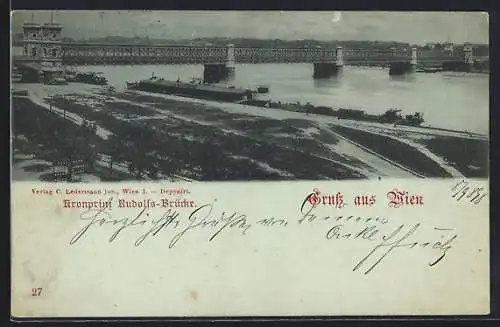 Verlag C. Ledermann jun., Wien I. — Deponirt.
Kronprinz Rudolfs-Brücke.
Gruß aus Wien
Herzliche Grüße von Deinem
Onkel
27